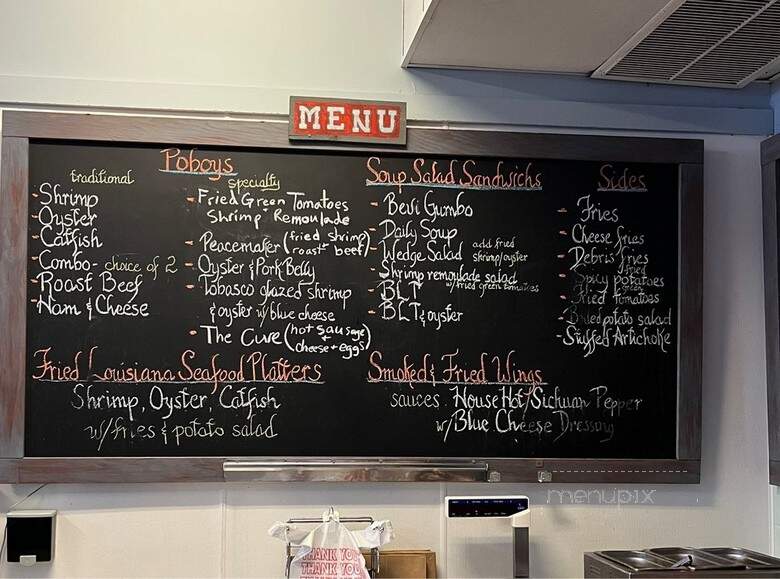 MENU
Poboys
traditional
- Shrimp
- Oyster
- Catfish
- Combo - choice of 2
- Roast Beef
- Ham & Cheese
specialty
- Fried Green Tomatoes
Shrimp Remoulade
- Peacemaker (fried shrimp
roast beef)
- Oyster & Pork Belly
- Tobasco glazed shrimp
& oyster w/ blue cheese
- The Cure (hot sausage
cheese + eggs)
Soup Salad Sandwichs
- Bevi Gumbo
- Daily Soup
- Wedge Salad add fried
shrimp/oyster
- Shrimp remoulade salad
w/ fried green tomatoes
- BLT
- BLT & oyster
Sides
- Fries
- Cheese fries
- Debris fries
- Spicy fried potatoes
- Fried green tomatoes
- potato salad
- Stuffed Artichoke
Fried Louisiana Seafood Platters
Shrimp, Oyster, Catfish
w/ fries & potato salad
Smoked & Fried Wings
sauces. House Hot/Sichuan Pepper
w/ Blue Cheese Dressing
menupix
THANK YOU
THANK YOU